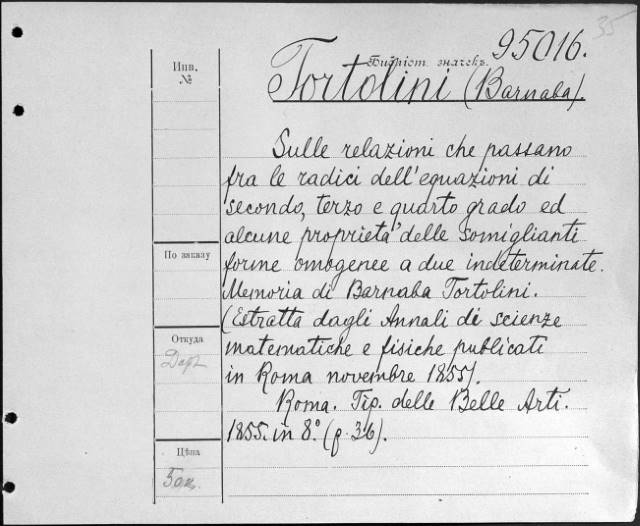 35
95016.
Библіот. значекъ.
Tortolini (Barnaba).
Инв.
№
Sulle relazioni che passano
fra le radici dell'equazioni di
secondo, terzo e quarto grado ed
alcune proprietà delle somiglianti
forme omogenee a due indeterminate.
Memoria di Barnaba Tortolini.
(Estratta dagli Annali di scienze
matematiche e fisiche publicati
in Roma novembre 1855).
Roma. Tip. delle Belle Arti.
1855. in 8.° (p. 36).
По заказу
Откуда
Даръ
Цѣна